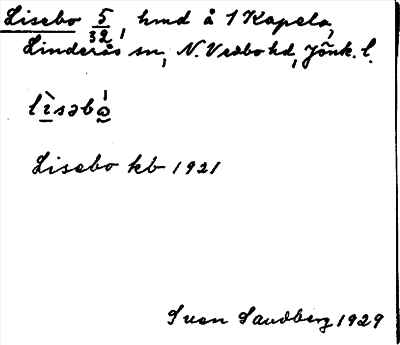 Lisebo 5/32, hmd å 1 Kapela,
Linderås sn, N. Vedbo hd, Jönk. l.
lìsəbò̤
Lisebo kb 1921
Sven Sandberg 1929